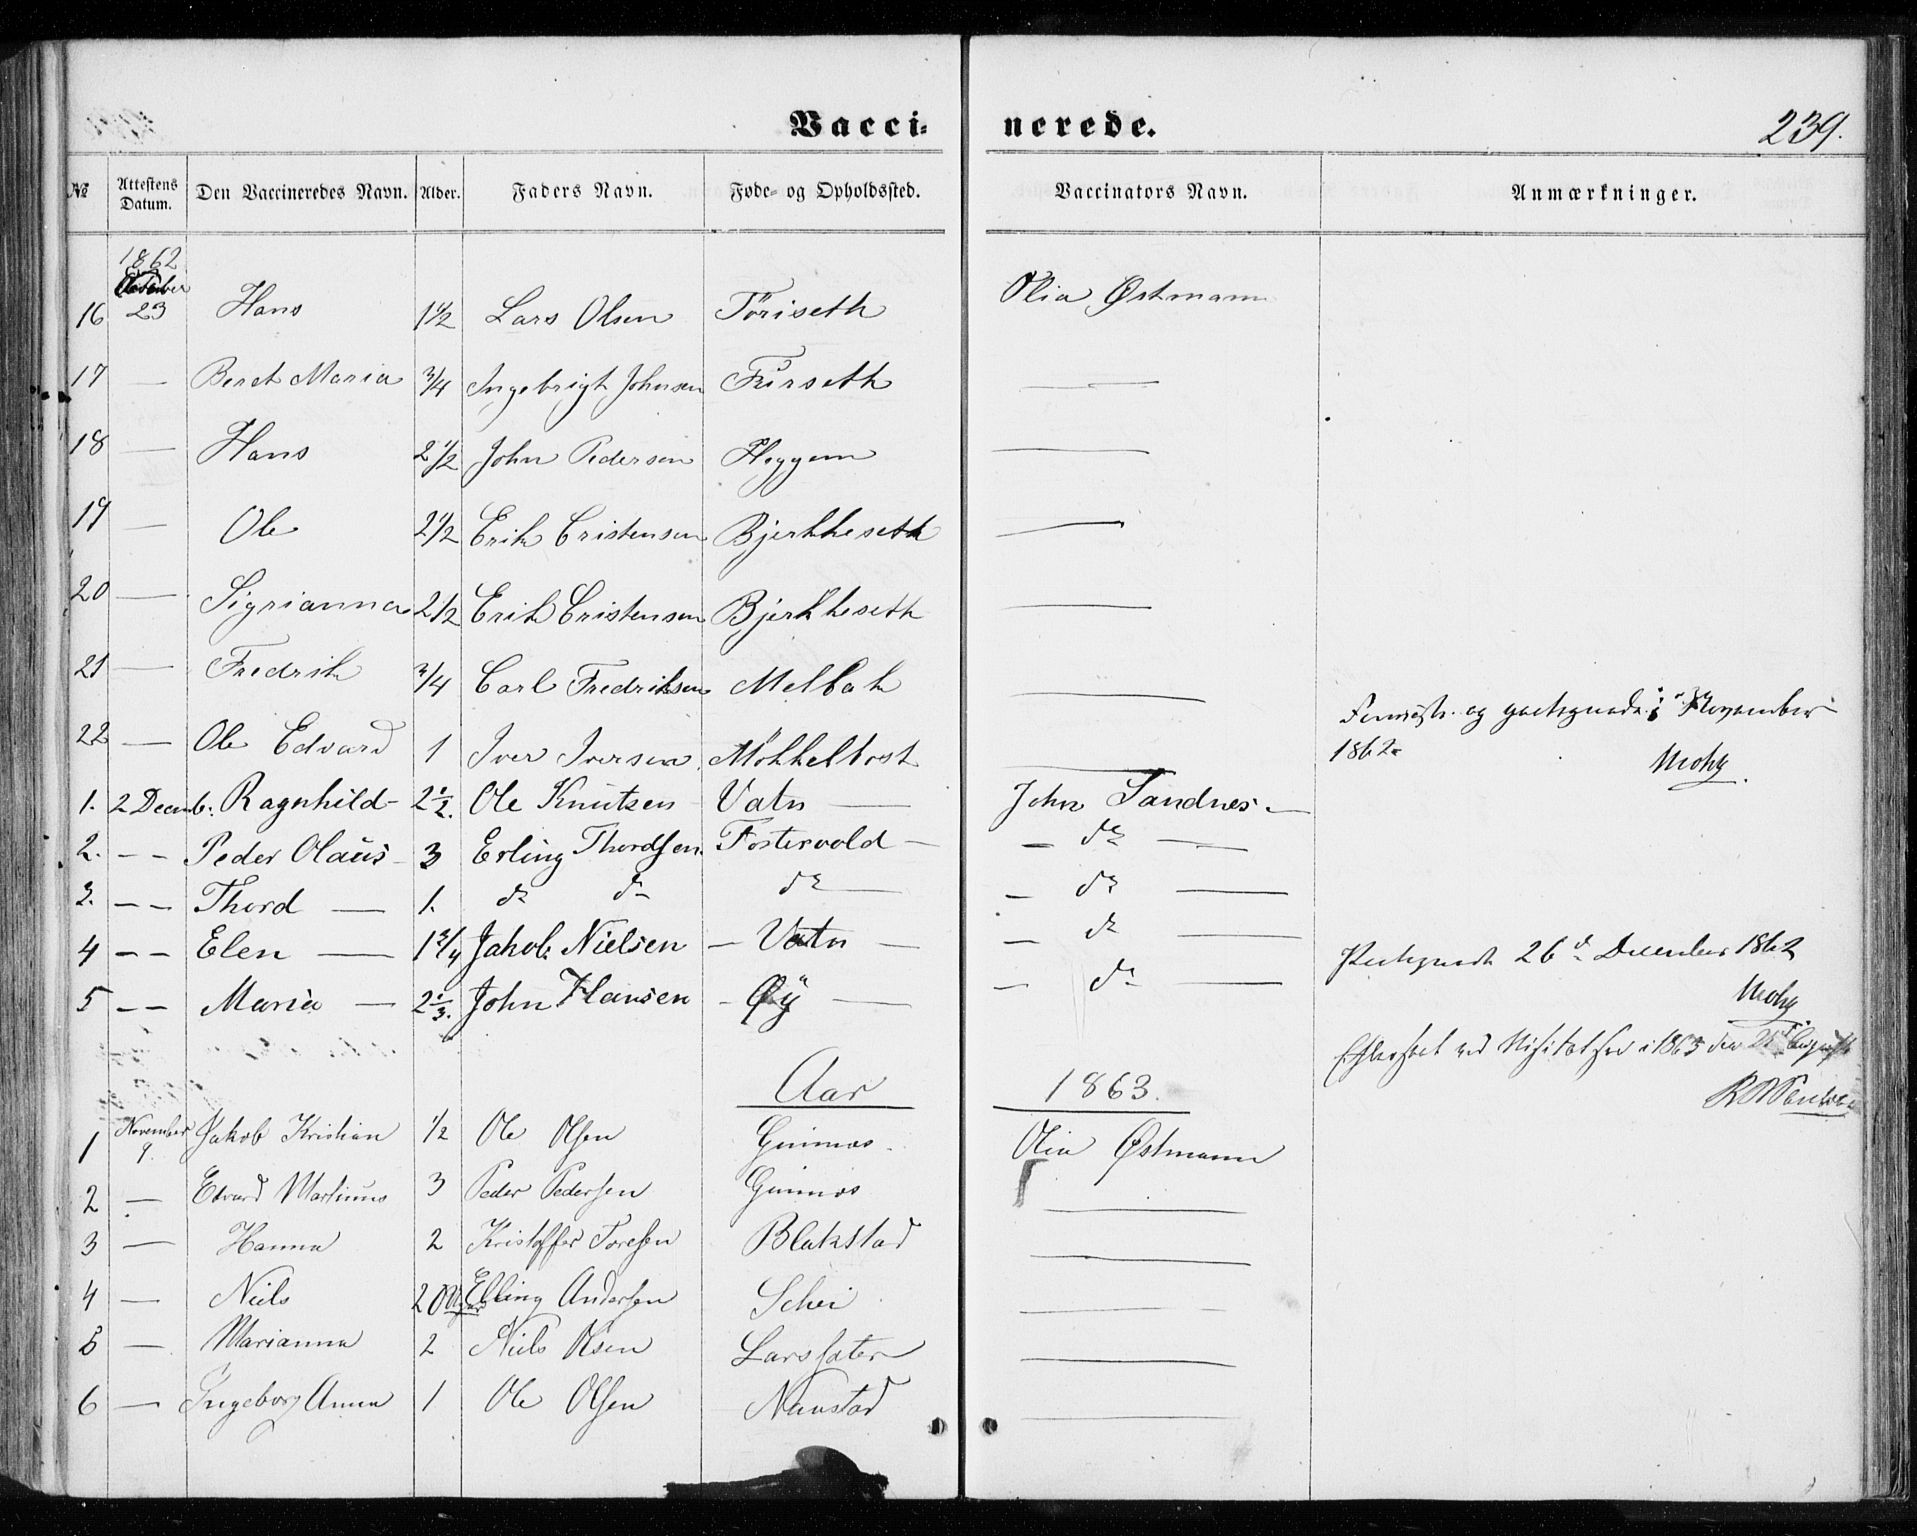 Vaccinerede. 239.
№ Attestens Datum. Den Vaccineredes Navn. Alder. Faders Navn. Føde- og Opholdssted. Vaccinators Navn. Anmærkninger.
1862
16 23 Hans 1 1/2 Lars Olsen Töriseth Olia Østmann
17 — Beret Maria 3/4 Ingebrigt Johnsen Fürseth —
18 — Hans 2 1/2 John Pedersen Heggem —
19 — Ole 2 1/2 Erik Cristensen Bjerkheseth —
20 — Sigrianna 2 1/2 Erik Cristensen Bjerkheseth —
21 — Fredrik 3/4 Carl Fredriksen Melbak —
22 — Ole Edvard 1 Iver Iversen Mökkeltost — og November
1862
1. 2 Decemb: Ragnhild 2 1/2. Ole Knutsen Vatn — John Sandnes —
2. - - Peder Olaus 3 Erling Thordsen. Fostervold — — do —
3. - - Thord — 1. do do do — — do —
4 - - Elen — 1 3/4 Jakob Nielsen — Vatn — — do — 26d December 1862
5 - - Maria — 2 1/3. John Hansen - Øÿ — — do —
ved i 1863 den August
Aar 1863.
1 November 9. Jakob Kristian 1/2 Ole Olsen Guimos. Olia Østmann
2 — Edvard Martinus 3 Peder Pedersen Guimos —
3 — Hanna 2 Kristoffer Toresen Blakstad —
4 — Niels 20 Elling Andersen Schei —
5 — Marianna 2 Niels Olsen Larssæter —
6 — Ingeborg Anna 1 Ole Olsen Naustad —